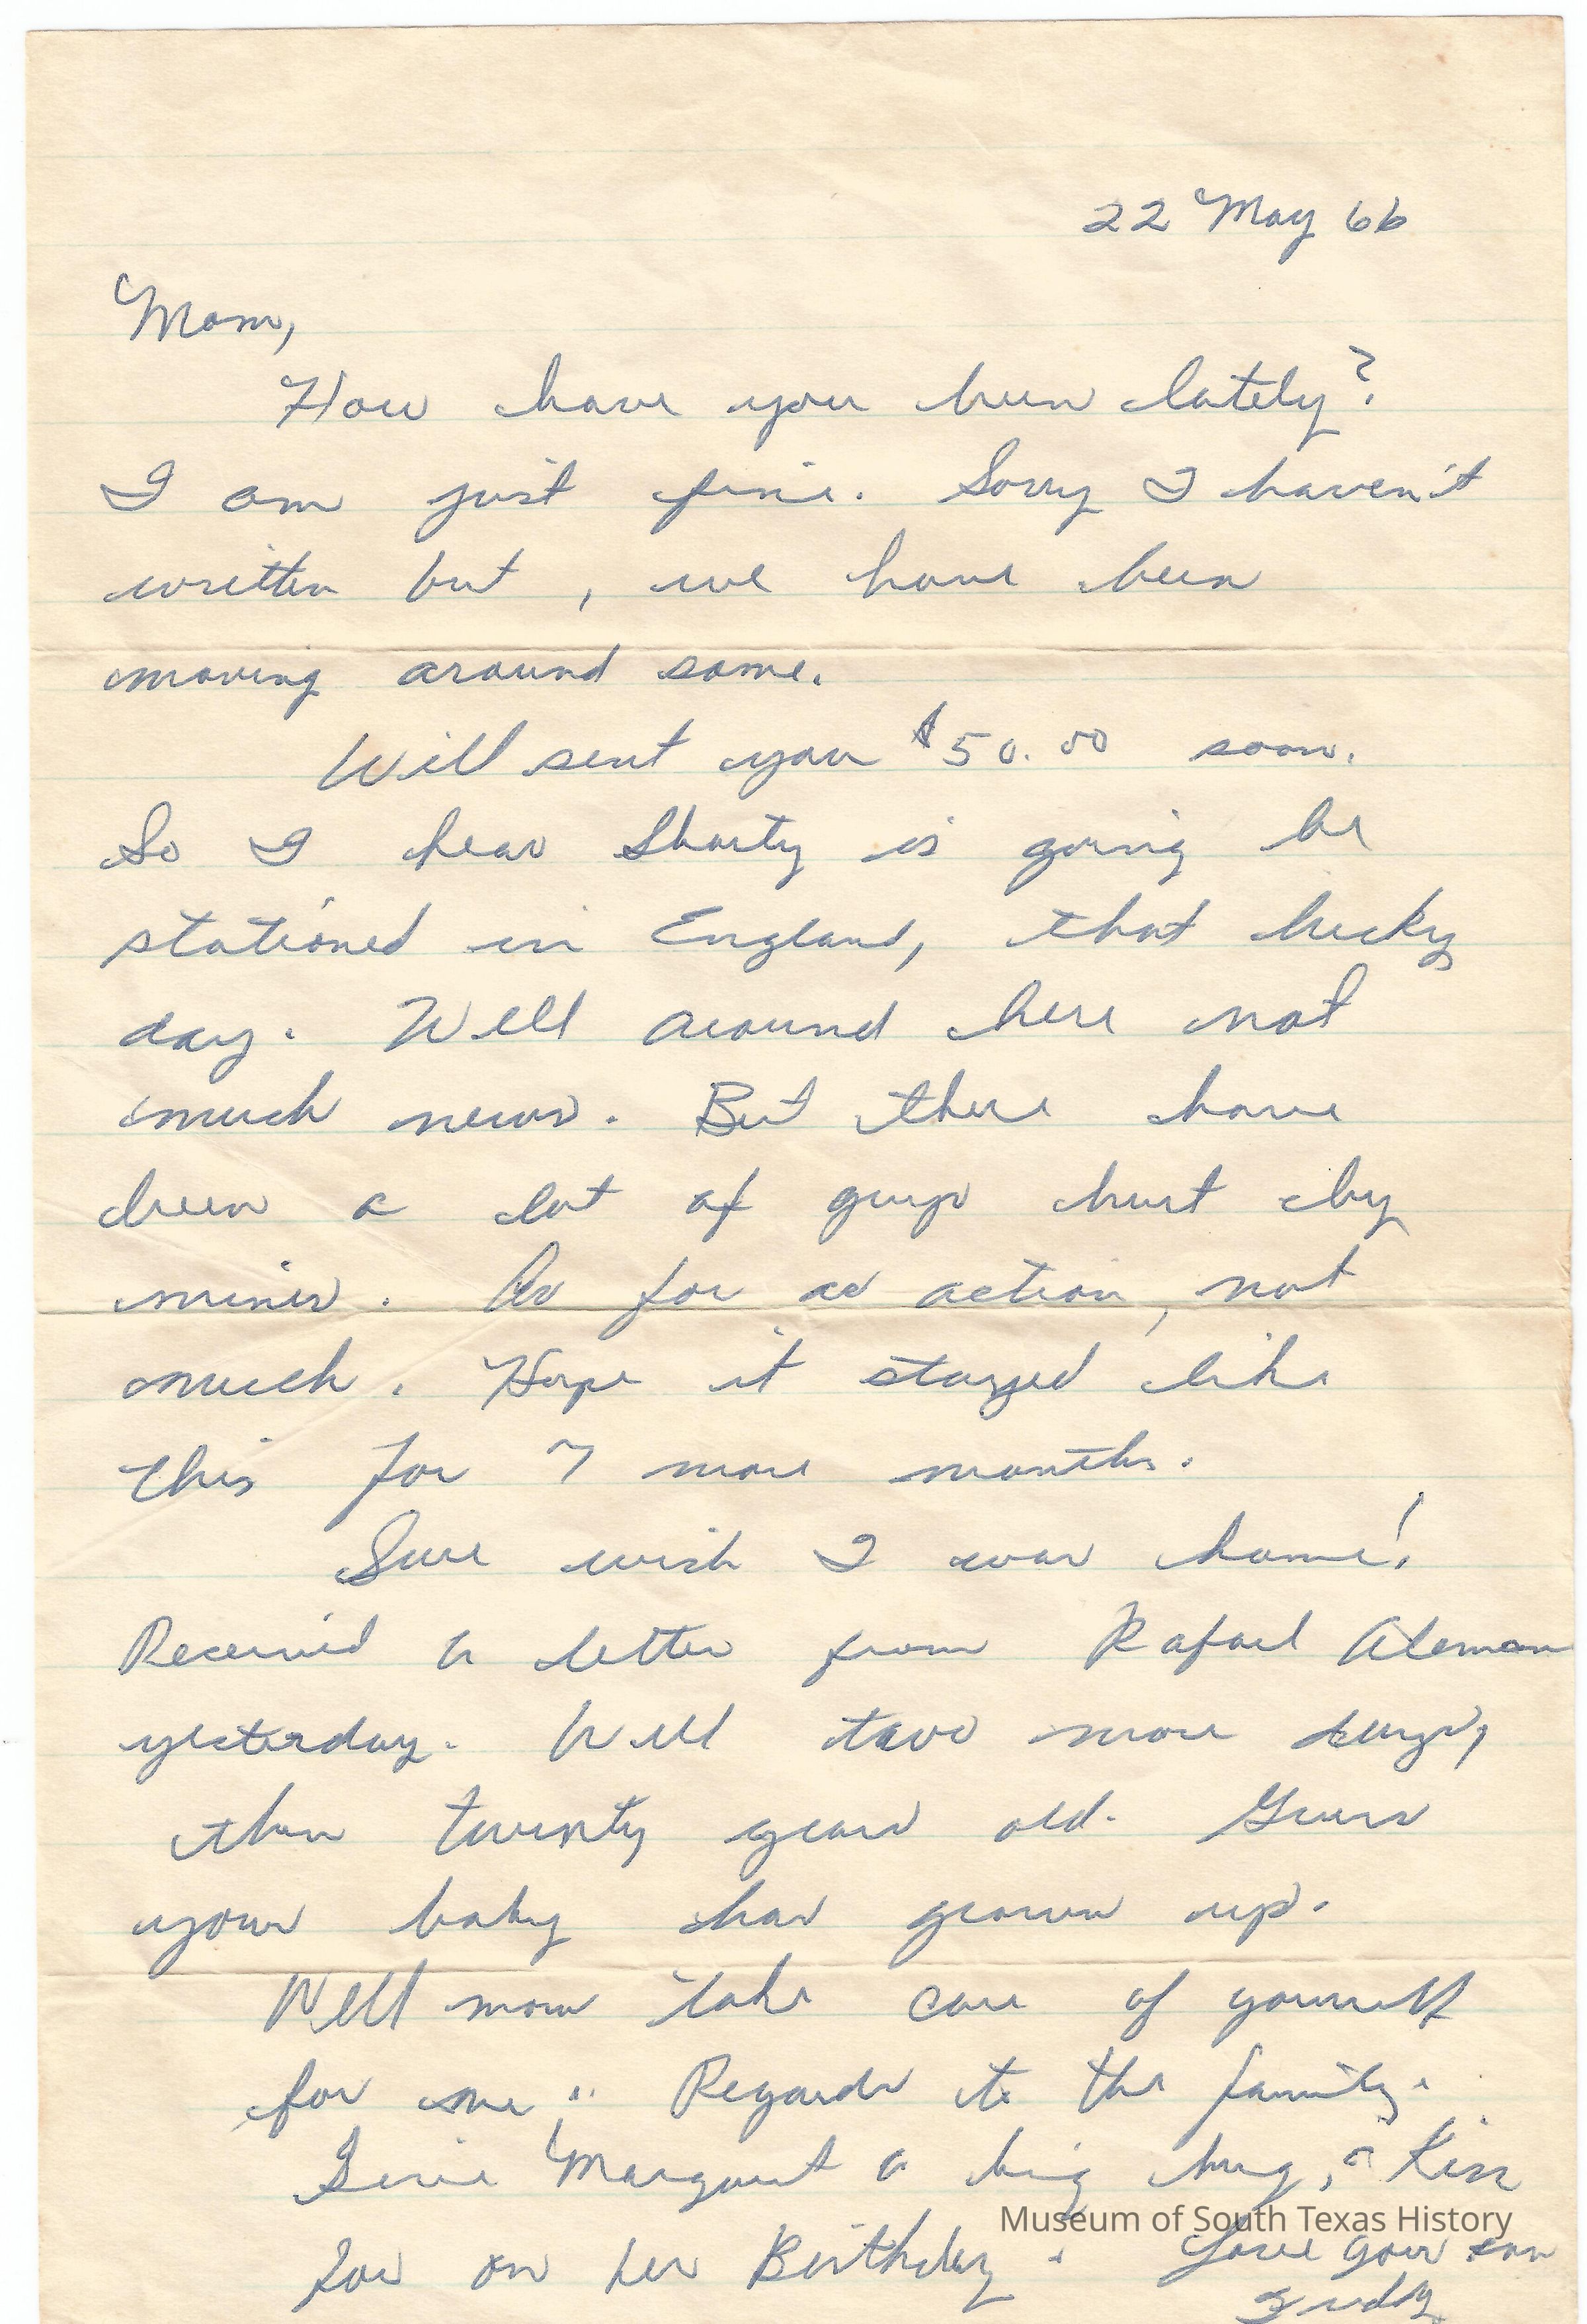 22 May 66
Mom,
How have you been lately?
I am just fine. Sorry I haven't
written but, we have been
moving around some.
Will sent you $50.00 soon.
So I hear Shorty is going be
stationed in England, that lucky
day. Well around here not
much news. But there have
been a lot of guys hurt by
mines. As for as action, not
much. Hope it stayed like
this for 7 more months.
Sure wish I was home!
Received a letter from Rafael Aleman
yesterday. Well two more days,
than twenty years old. Guess
your baby has grown up.
Well mom take care of yourself
for me. Regards to the family.
Give Margaret a big hug, a Kiss
for on her Birthday. Love your son
Museum of South Texas History